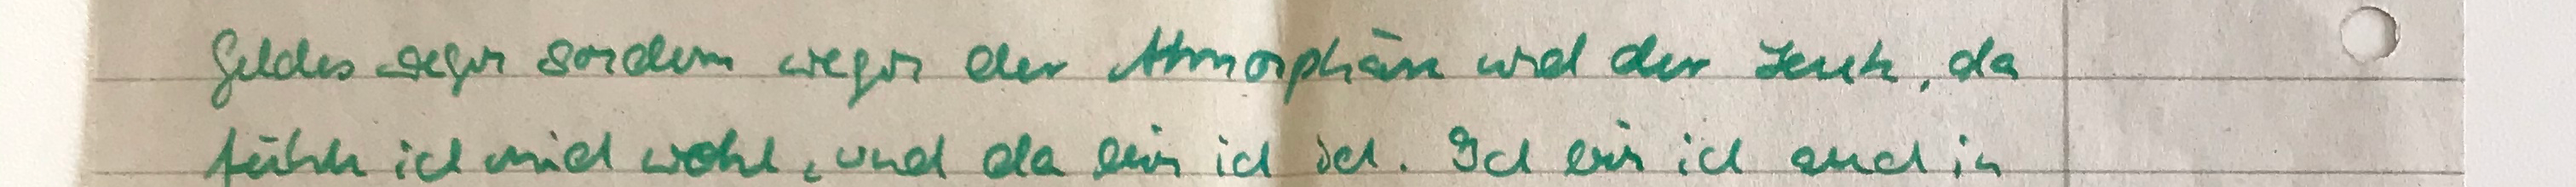 Geldes wegen sondern wegen der Atmosphäre und der Leute, da
fühle ich mich wohl, und da bin ich ich. Ich bin ich auch in